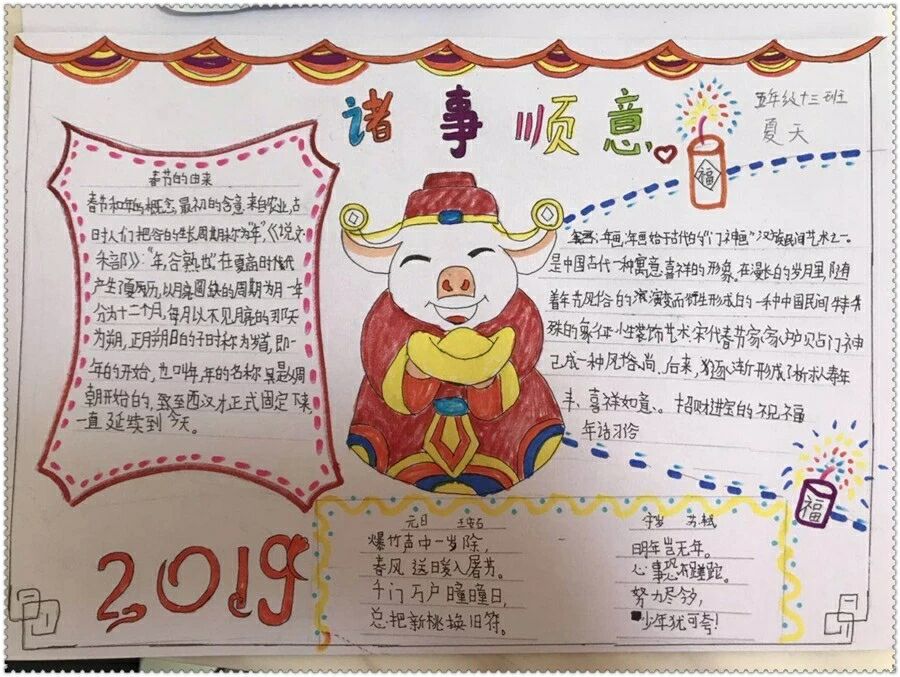 诸事顺意
五年级十三班
夏天
福
春节的由来
春节和年的概念,最初的含意来自农业,古
时人们把谷的生长周期称为"年",《说文.
禾部》:"年,谷熟也"在夏商时代
产生了夏历,以月亮圆缺的周期为月一年
分为十二个月,每月以不见月亮的那天
为朔,正月朔日的子时称为岁首,即一
年的开始,也叫年,年的名称是从周
朝开始的,致至西汉才正式固定下来
一直延续到今天。
年画,年画始于古代的"门神画"汉族民间艺术之一
是中国古代一种寓意喜祥的形象。在漫长的岁月里,随
着年节风俗的演变而衍生形成的一种中国民间特
殊的象征性装饰艺术。宋代春节家家户户贝占门神
已成一种风俗尚,后来,逐渐形成了祈求寿年
丰、喜祥如意、招财进宝的祝福
年诗习俗
福
2019
元日 王安石
爆竹声中一岁除,
春风送日暖入屠苏。
千门万户曈曈日,
总把新桃换旧符。
守岁 苏轼
明年岂无年。
心事恐蹉跎。
努力尽今夕,
少年犹可夸!